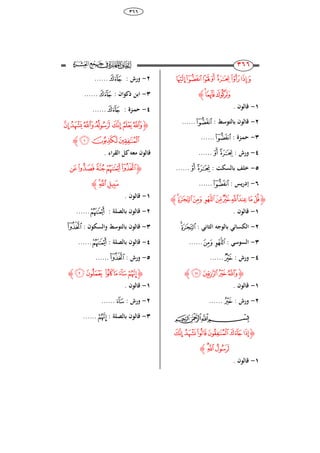 ٣٦٦
﴿وَإِذَا رَأَوْا تِجَارَةً أَوْ لَهْوًا انفَضُّوا إِلَيْهَا
وَتَرَكُوكَ قَائِمًا﴾
١- قالون .
٢- قالون بالتوسط : انفَضُّوا ......
٣- حمزة : انفَضُّوا ......
٤- ورش : تِجَارَةً أَوْ ......
٥- خلف بالسكت : تِجَارَةً أَوْ ......
٦- إدريس : انفَضُّوا ......
﴿قُلْ مَا عِندَ اللَّهِ خَيْرٌ مِّنَ اللَّهْوِ وَمِنَ التِّجَارَةِ﴾
١- قالون .
٢- الكسائي بالوجه الثاني : التِّجَارَةِ
٣- السوسي : اللَّهْوِ وَمِنَ ......
٤- ورش : خَيْرٌ ......
﴿وَاللَّهُ خَيْرُ الرَّازِقِينَ ۝﴾
١- قالون .
٢- ورش : خَيْرُ ......
بِسْمِ اللَّهِ الرَّحْمَٰنِ الرَّحِيمِ
﴿إِذَا جَاءَكَ الْمُنَافِقُونَ قَالُوا نَشْهَدُ إِنَّكَ
لَرَسُولُ اللَّهِ﴾
١- قالون .
٢- ورش : جَاءَكَ ......
٣- ابن ذكوان : جَاءَكَ ......
٤- حمزة : جَاءَكَ ......
﴿وَاللَّهُ يَعْلَمُ إِنَّكَ لَرَسُولُهُ وَاللَّهُ يَشْهَدُ إِنَّ
الْمُنَافِقِينَ لَكَاذِبُونَ ۝﴾
قالون معه كل القراء .
﴿اتَّخَذُوا أَيْمَانَهُمْ جُنَّةً فَصَدُّوا عَن
سَبِيلِ اللَّهِ﴾
١- قالون .
٢- قالون بالصلة : أَيْمَانَهُمْ ......
٣- قالون بالتوسط والسكون : اتَّخَذُوا
٤- قالون بالصلة : أَيْمَانَهُمْ ......
٥- ورش : اتَّخَذُوا ......
﴿إِنَّهُمْ سَاءَ مَا كَانُوا يَعْمَلُونَ ۝﴾
١- قالون .
٢- ورش : سَاءَ ......
٣- قالون بالصلة : إِنَّهُمْ ......